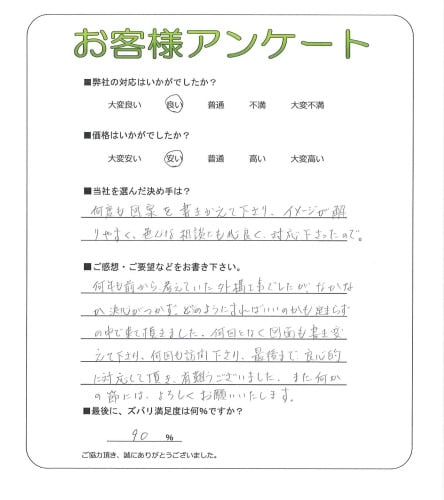 お客様アンケート
■弊社の対応はいかがでしたか？
大変良い 良い 普通 不満 大変不満
■価格はいかがでしたか？
大変安い 安い 普通 高い 大変高い
■当社を選んだ決め手は？
何度も図案を書きかえて下さり、イメージが解
りやすく、色んな相談にも心良く、対応下さったので。
■ご感想・ご要望などをお書き下さい。
何年も前から、考えていた外構工事でしたが、なかな
か決心がつかず、どのようにすればいいのかも定まらず
の中で来て頂きました。何回となく図面も書き変
えて下さり、何回も訪問下さり、最後まで良心的
に対応して頂き、有難うございました。また何か
の節には、よろしくお願いいたします。
■最後に、ズバリ満足度は何%ですか？
90 %
ご協力頂き、誠にありがとうございました。